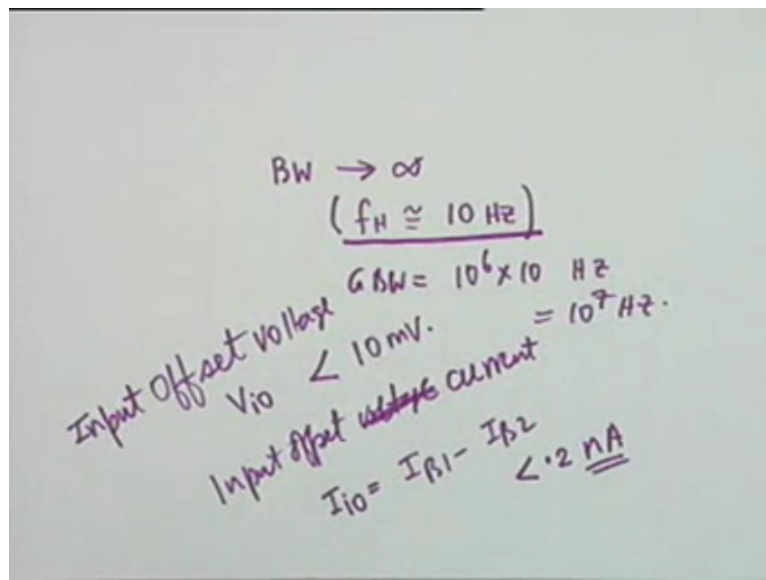 BW → ∞
(fH ≅ 10 Hz)
GBW = 10⁶ × 10 Hz
= 10⁷ Hz.
Input Offset voltage
Vio < 10 mV.
Input offset current
Iio = IB1 - IB2
< .2 nA